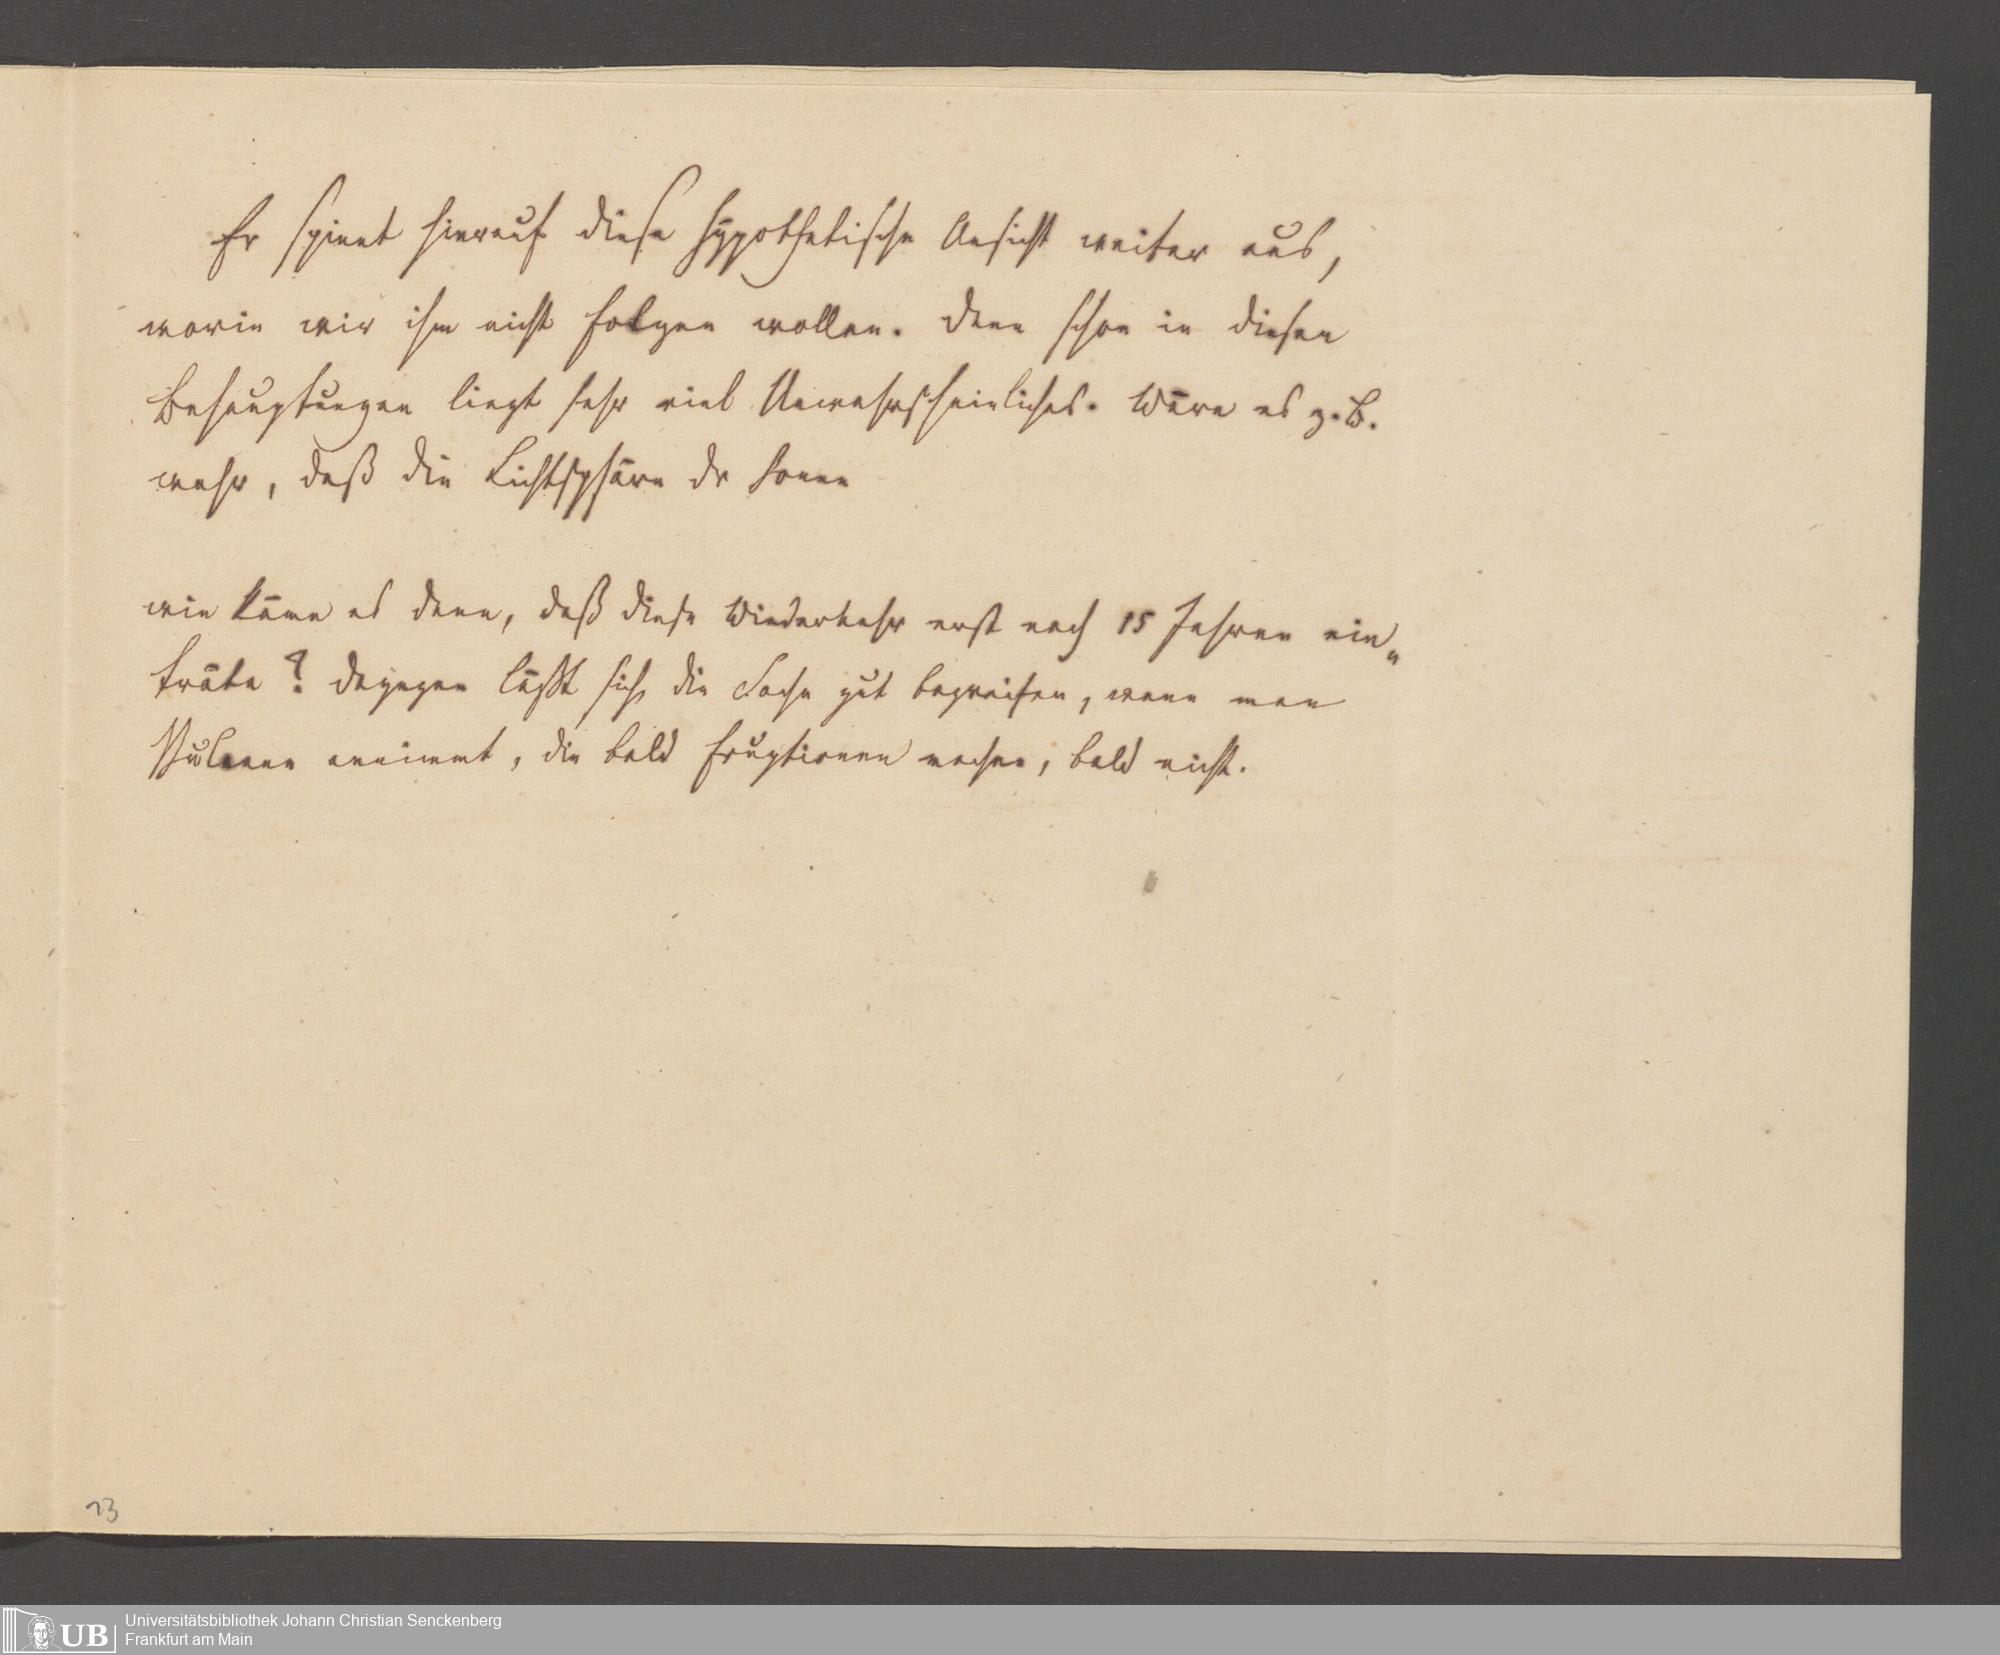 Er spinnt hierauf diese hypothetische Ansicht weiter aus,
worin wir ihm nicht folgen wollen. Denn schon in diesen
Behauptungen liegt sehr viel Unwahrscheinliches. Wäre es z. B.
wahr, daß die Lichtsphäre dr Sonne
wie käme es denn, daß diese Wiederkehr erst nach 15 Jahren ein„
träte? Dagegen läßt sich die Sache gut begreifen, wenn man
Vulcane annimmt, die bald Eruptionen machen, bald nicht.
23
UB
Universitätsbibliothek Johann Christian Senckenberg
Frankfurt am Main